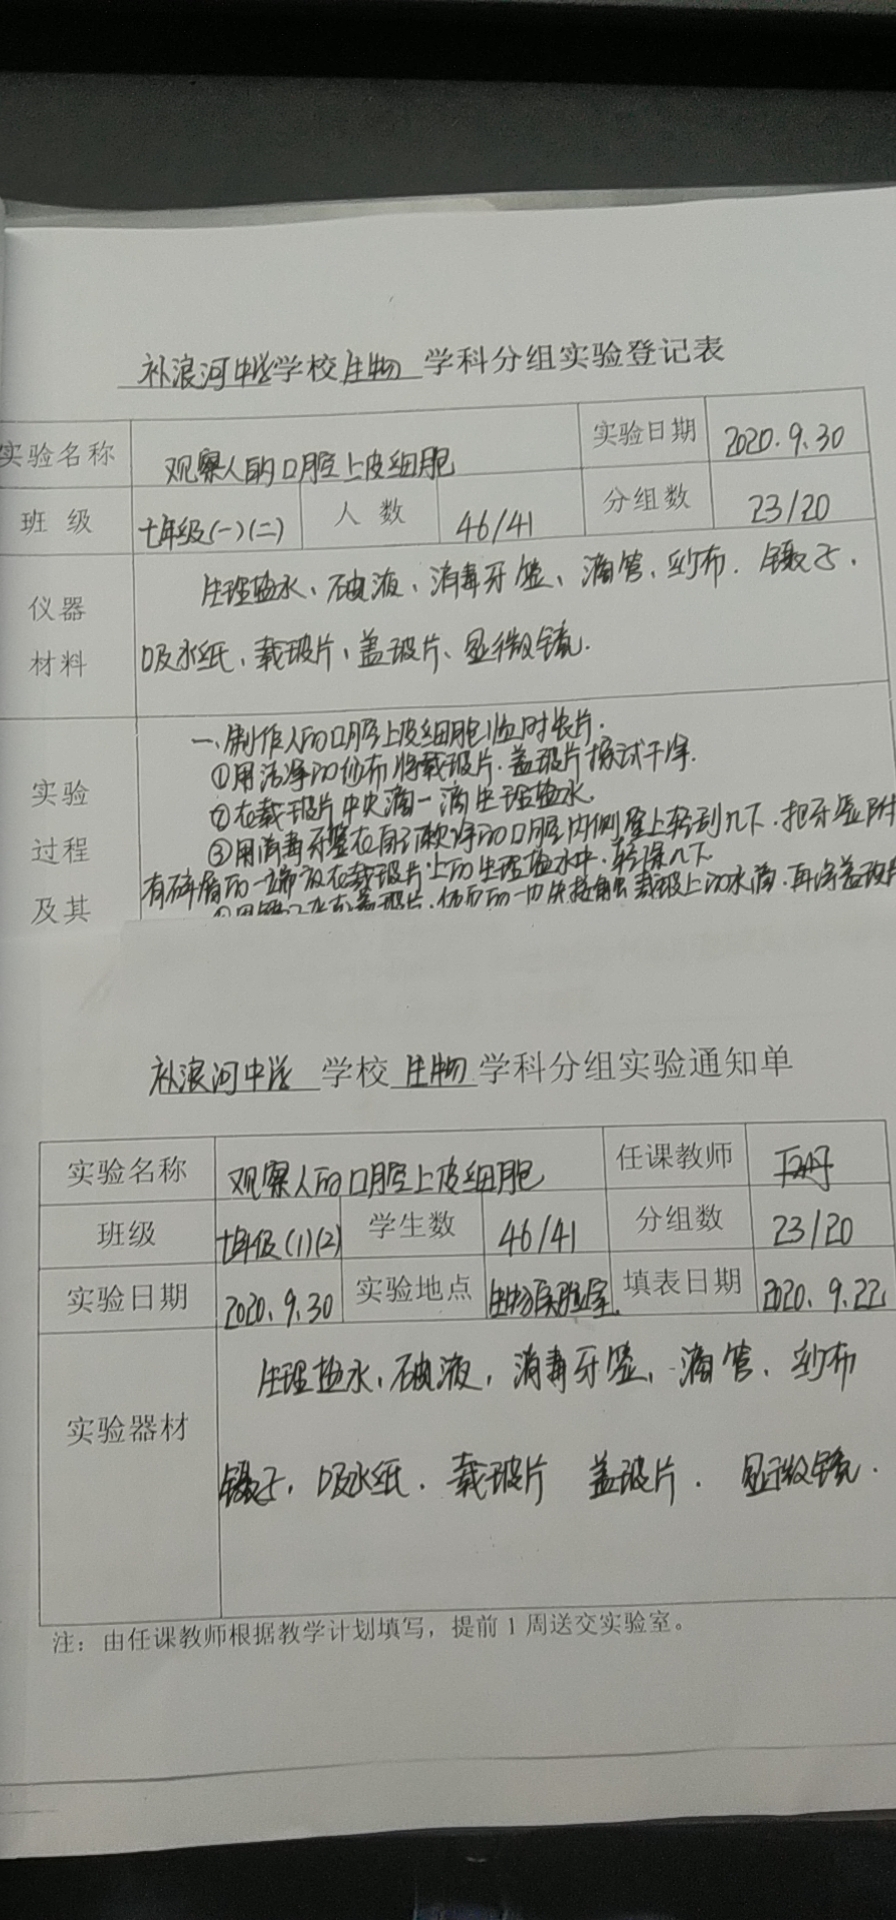 补浪河中学学校生物 学科分组实验登记表
实验名称 观察人的口腔上皮细胞 实验日期 2020.9.30
班级 七年级(一)(二) 人数 46/41 分组数 23/20
仪器材料 生理盐水、碘液、消毒牙签、滴管、纱布、镊子、
吸水纸、载玻片、盖玻片、显微镜.
实验过程及其
一、制作人的口腔上皮细胞临时装片.
①用洁净的纱布将载玻片、盖玻片擦试干净.
②在载玻片中央滴一滴生理盐水.
③用消毒牙签在自己漱净的口腔内侧壁上轻刮几下、把牙签附
有碎屑的一端放在载玻片上的生理盐水中,轻涂几下.
④用镊子夹起盖玻片,使它的一边先接触载玻上的水滴,再将盖玻片
补浪河中学 学校 生物 学科分组实验通知单
实验名称 观察人的口腔上皮细胞 任课教师
班级 七年级(1)(2) 学生数 46/41 分组数 23/20
实验日期 2020.9.30 实验地点 生物实验室 填表日期 2020.9.22
实验器材 生理盐水,碘液,消毒牙签,滴管、纱布
镊子,吸水纸.载玻片 盖玻片.显微镜.
注：由任课教师根据教学计划填写，提前1周送交实验室。